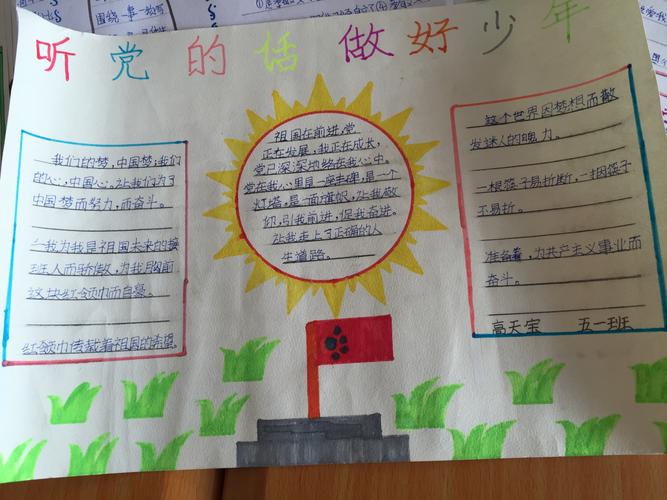 听党的话做好少年
我们的梦,中国梦,我们
的心,中国心,让我们为了
中国梦而努力,而奋斗。
我为我是祖国未来的接
班人而骄傲,为我胸前
这块红领巾而自豪。
红领巾传载着祖国的希望
祖国在前进,党
正在发展,我正在成长,
党已深深地烙在我心中。
党在我心里是一座丰碑,是一个
灯塔,是一面旗帜,让我敬
仰,引我前进,促我奋进。
让我走上了正确的人
生道路。
这个世界因梦想而散
发迷人的魄力。
一根筷子易折断,一捆筷子
不易折。
准备着,为共产主义事业而
奋斗。
高天宝 五一班
围绕一事一物写